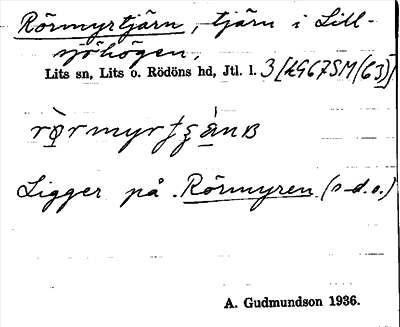 Rörmyrtjärn, tjärn i Lill-
sjöhögen,
Lits sn, Lits o. Rödöns hd, Jtl. l. 3
Ligger på Rörmyren (s.d.o.)
A. Gudmundson 1936.